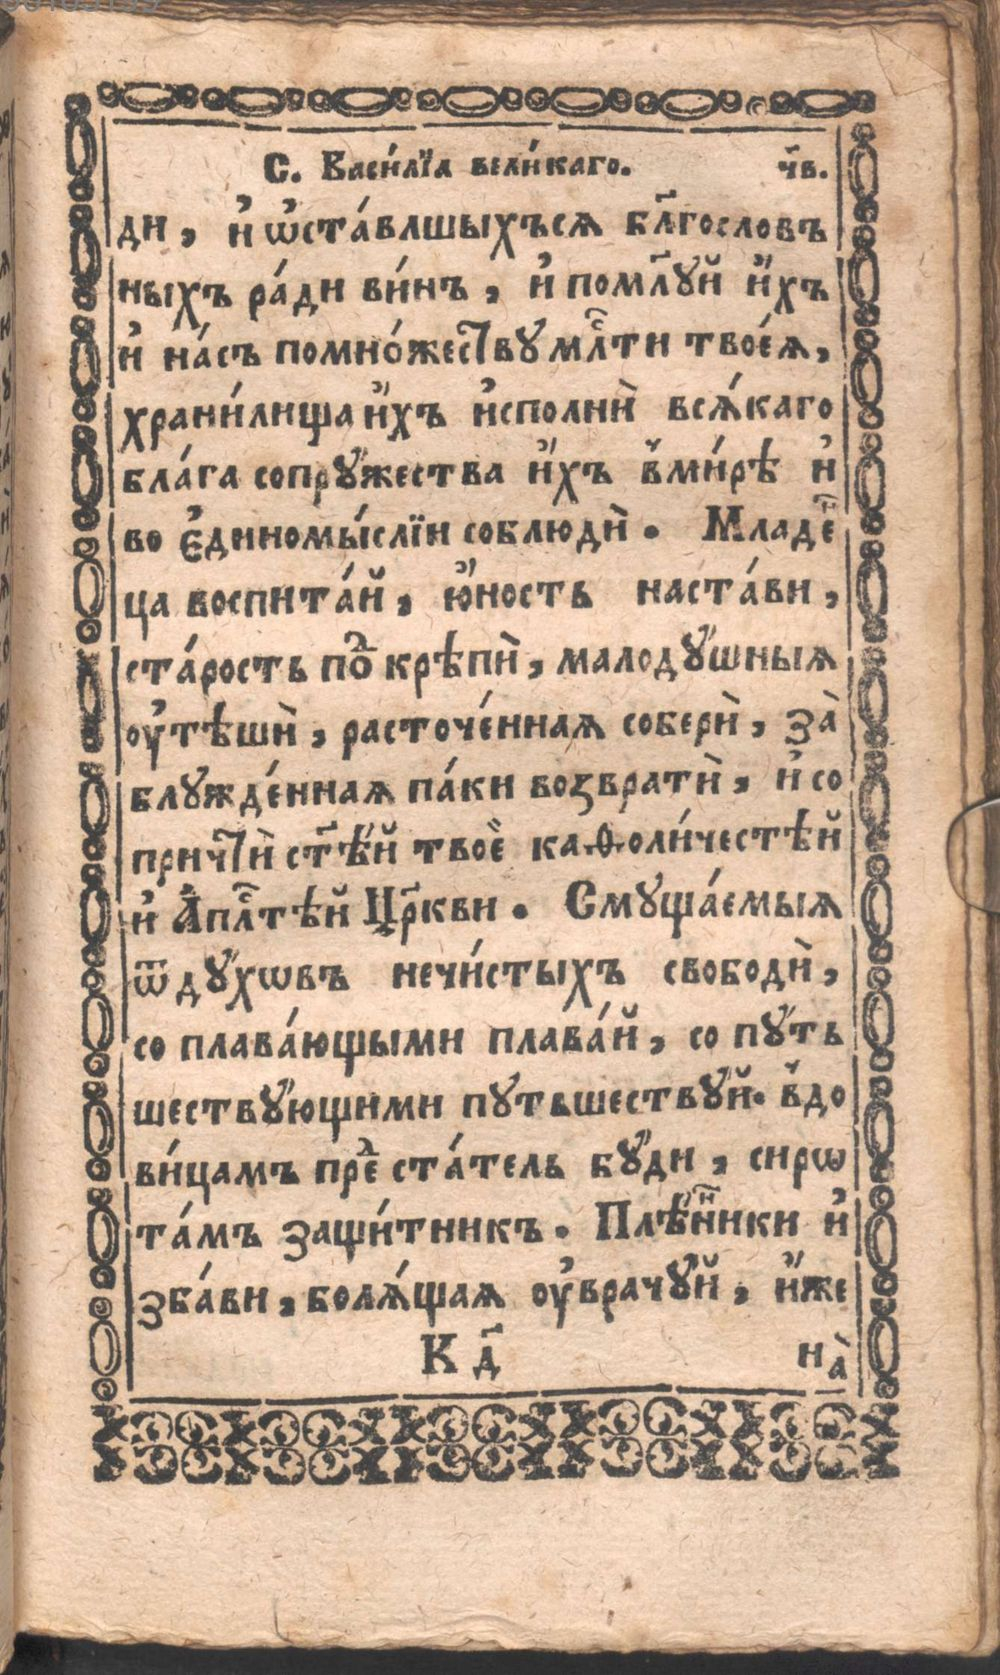 С. Васи́лїѧ вели́каго. ч҃в.
ди , и҆ ѡ҆ста́вльшыхъсѧ бл҃гословъ
ныхъ ра́ди ви́нъ , и҆ поми҃лꙋй и҆́хъ
и҆ на́съ помно́жестⷡ҇ꙋ млⷭ҇ти твоеѧ̀ ,
храни́лища и҆́хъ и҆сполнѝ всѧ́каго
бла́га сопрꙋ́жества и҆́хъ в̾ми́рѣ и҆
во є҆диномы́слїи соблюдѝ . Младеⷩ҇
ца воспита́й , ю҆́ность наста́ви ,
ста́рость поⷣ крѣпѝ , малодꙋ́шныѧ
оу҆тѣшѝ , расточе́ннаѧ соберѝ , за̀
блꙋжде́ннаѧ па́ки возвратѝ , и҆ со
причтѝ ст҃ѣ́й твоеѐ каѳоли́честѣй
и҆ А҆плⷭ҇тѣй Цр҃кви . Смꙋща́емыѧ
ѿ дꙋ́хѡвъ нечи́стыхъ свободѝ ,
со плава́ющыми плава́й , со пꙋ́ть
шествꙋ́ющими пꙋтьшествꙋ́й . в̾до
ви́цамъ преⷣ ста́тель бꙋ́ди , сирѡ
та́мъ защи́тникъ . Плѣ́нⷩ҇ики и҆
зба́ви , болѧ́щаѧ оу҆врачꙋ́й , и҆́же
К д҃
на̀